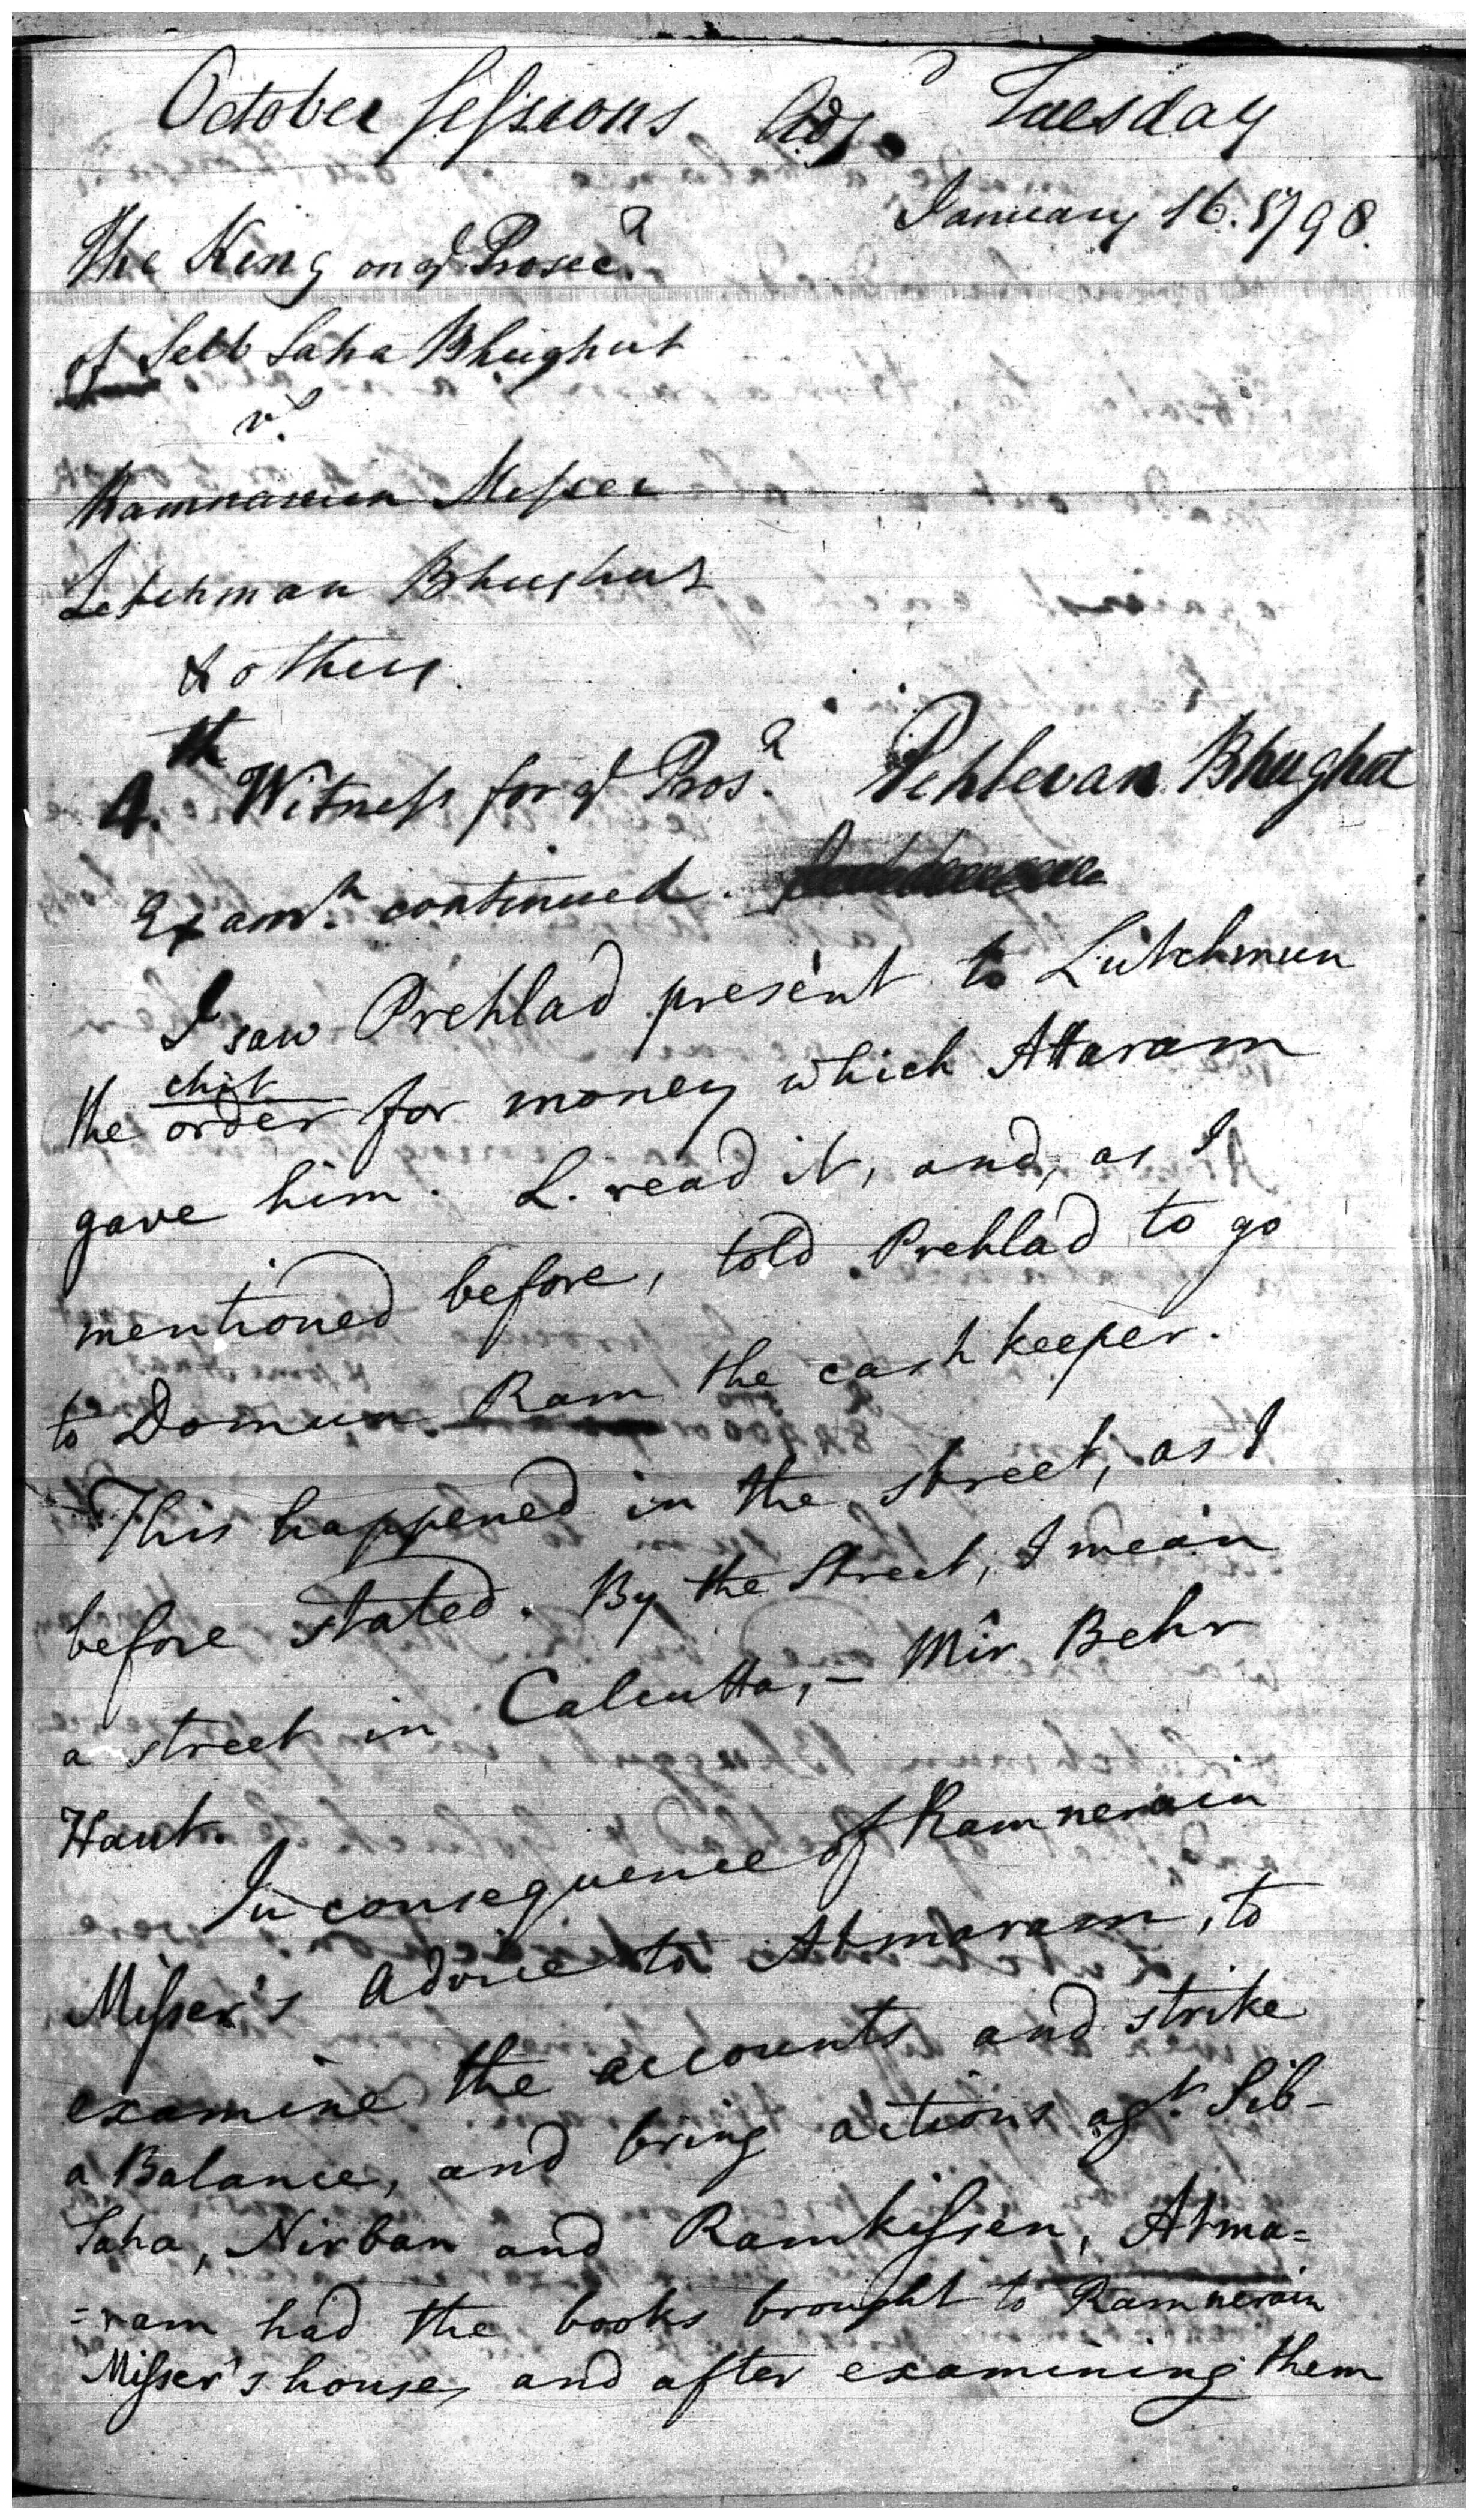 October Sessions Adj.d Tuesday
January 16. 1798.
The King on ye Prosec.n
of Seeb Saha Bhughut
vs.
Ramnarain Misser
Letchman Bhughut
& others
4.th Witness for ye Pros.n Pehlevan Bhughut
Exam.n continued.
I saw Prehlad present to Lutchmun
chit
the order for money which Attaram
gave him. L. read it, and, as I
mentioned before, told Prehlad to go
to Domun Ram the cash keeper.
This happened in the street, as I
before stated. By the Street, I mean
a street in Calcutta, – Mir Behr
Haut.
In consequence of Ramnerain
Misser's advice to Atmaram, to
examine the accounts and strike
a Balance, and bring actions ag.t Sib-
Saha, Nirban and Ramkissen, Atma=
=ram had the books brought to Ramnerain
Misser's house, and after examining them